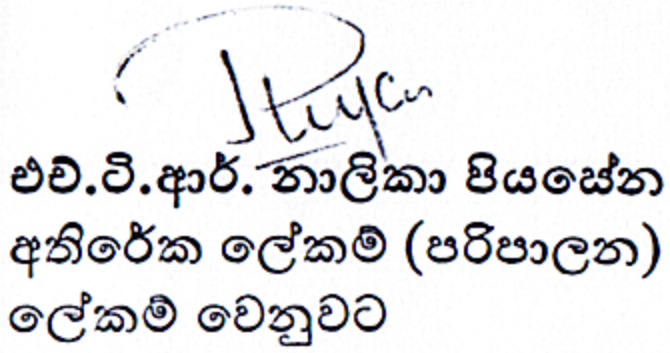 එච්.ටී.ආර්. නාලිකා පියසේන
අතිරේක ලේකම් (පරිපාලන)
ලේකම් වෙනුවට